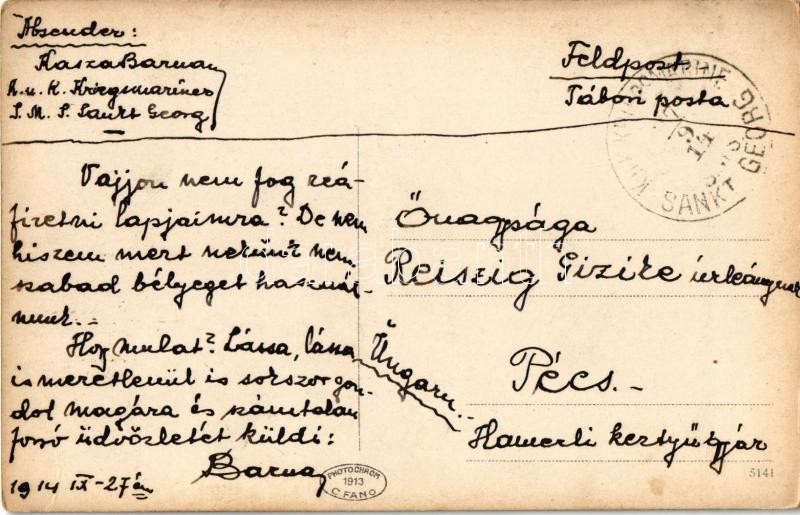 Absender:
Kasza Barna
K. u. K. Kriegsmarines
S. M. S. Sankt Georg
Feldpost
Tábori posta
K.u.K. KRIEGSMARINE
SANKT GEORG
Vajjon nem fog reá-
fizetni lapjaimra? De nem
hiszem mert nekünk nem
szabad bélyeget használ-
nunk.-
Hogy mulat? Lássa, lássa
ismeretlenül is sokszor gon-
dol magára és számtalan
forró üdvözletét küldi:
Barna
1914 IX-27én
Őnagysága
Reiszig Gizike úrleánynak
Ungarn.-
Pécs.-
Hamerli keztyűgyár
PHOTOCHROM
1913
C. FANO
5141